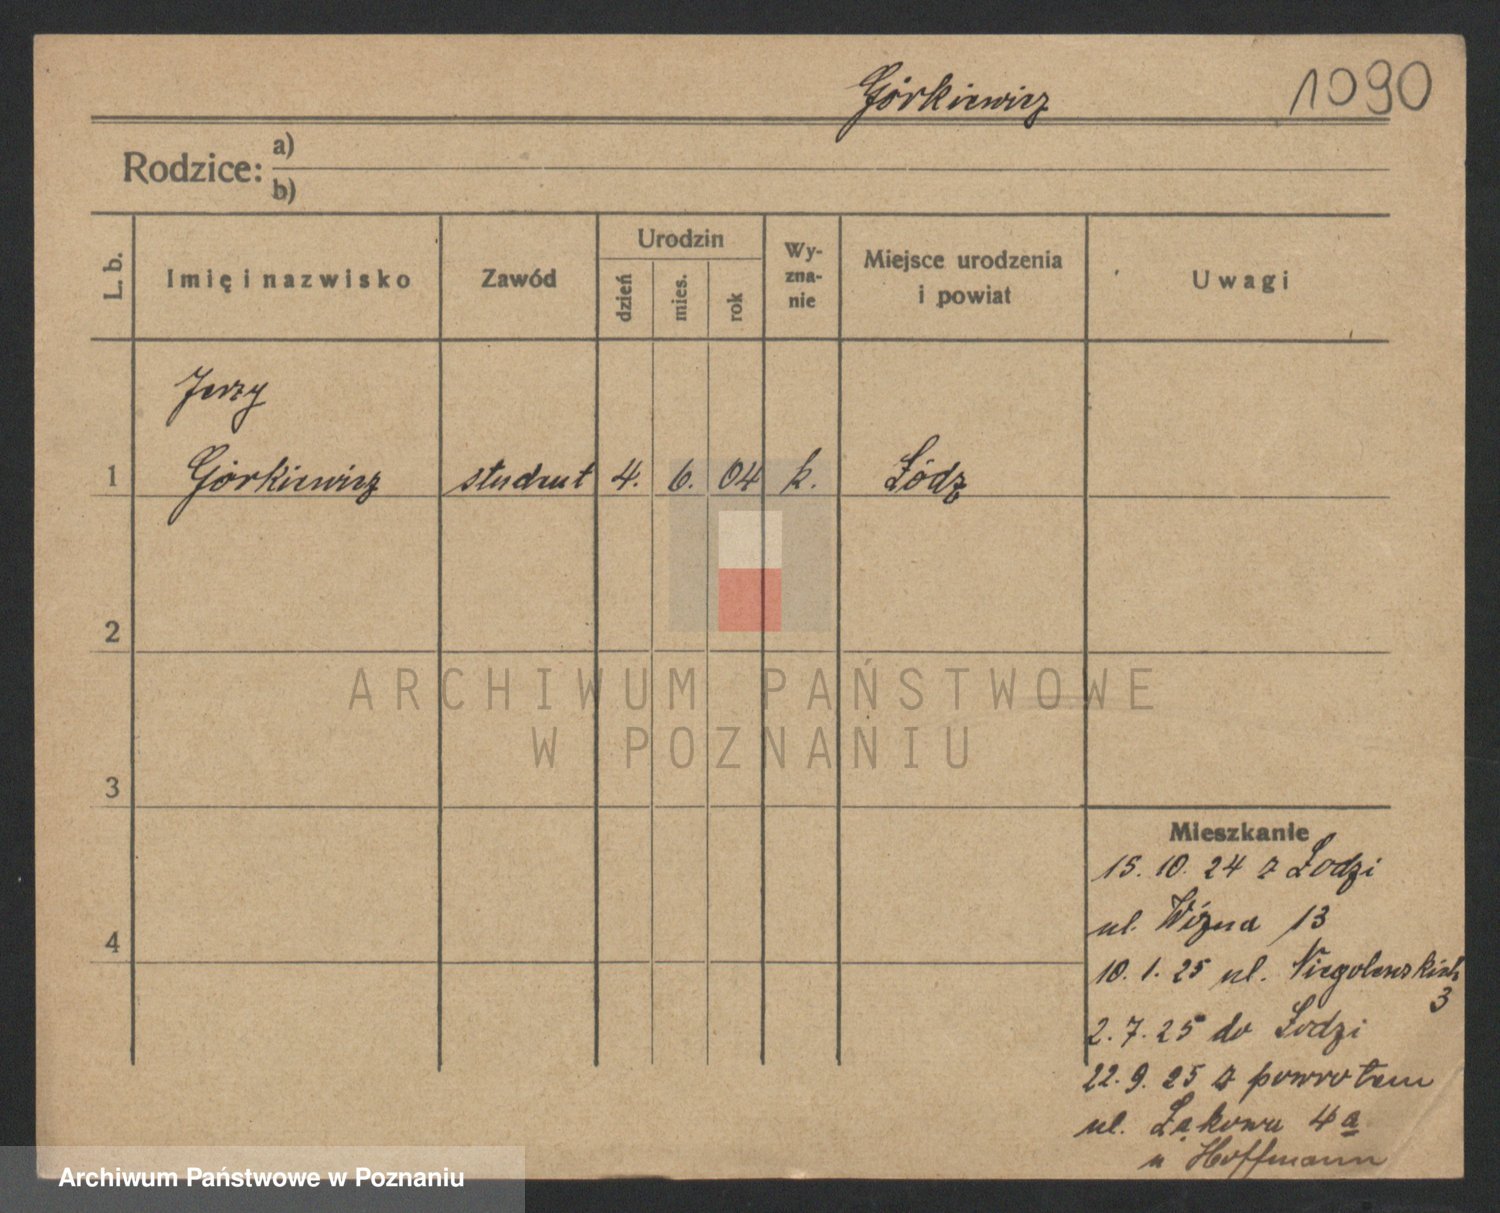 Górkiewicz 1090
Rodzice: a)
b)
L. b. Imię i nazwisko Zawód Urodzin dzień mies. rok Wy-zna-nie Miejsce urodzenia i powiat Uwagi
Jerzy
1 Górkiewicz student 4. 6. 04 k. Łódź
2
ARCHIWUM PAŃSTWOWE
W POZNANIU
3
Mieszkanie
15. 10. 24 z Łodzi
ul. Wózna 13
4
10. 1. 25 ul. Niegolewskich
3
2. 7. 25 do Łodzi
22. 9. 25 z powrotem
ul. Łąkowa 4a
u Hoffmann
Archiwum Państwowe w Poznaniu